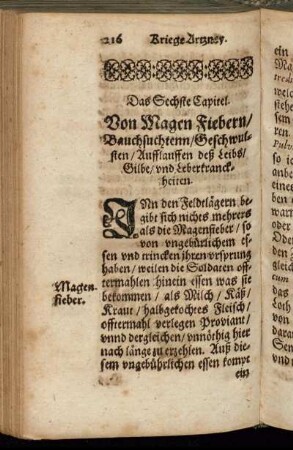 216 Kriegs Artzney.
Das Sechste Capitel.
Von Magen Fiebern/
Bauchsuchtenn/Geschwul-
sten/Aufflauffen deß Leibs/
Gilbe/vnd Leberkranck-
heiten.
INn den Feldtlägern be-
gibt sich nichts mehrers
als die Magenfieber/so
von vngebürlichem es-
sen vnd trincken jhren vrsprung
haben/weilen die Soldaten off-
termahlen hinein essen was sie
bekommen/als Milch/Käß/
Kraut/halbgekochtes Fleisch/
offtermal verlegen Proviant/
vnnd dergleichen/vnnöthig hier
nach länge zu erzehlen. Auß die-
sem vngebührlichen essen kompt
ein
Magen-
fieber.